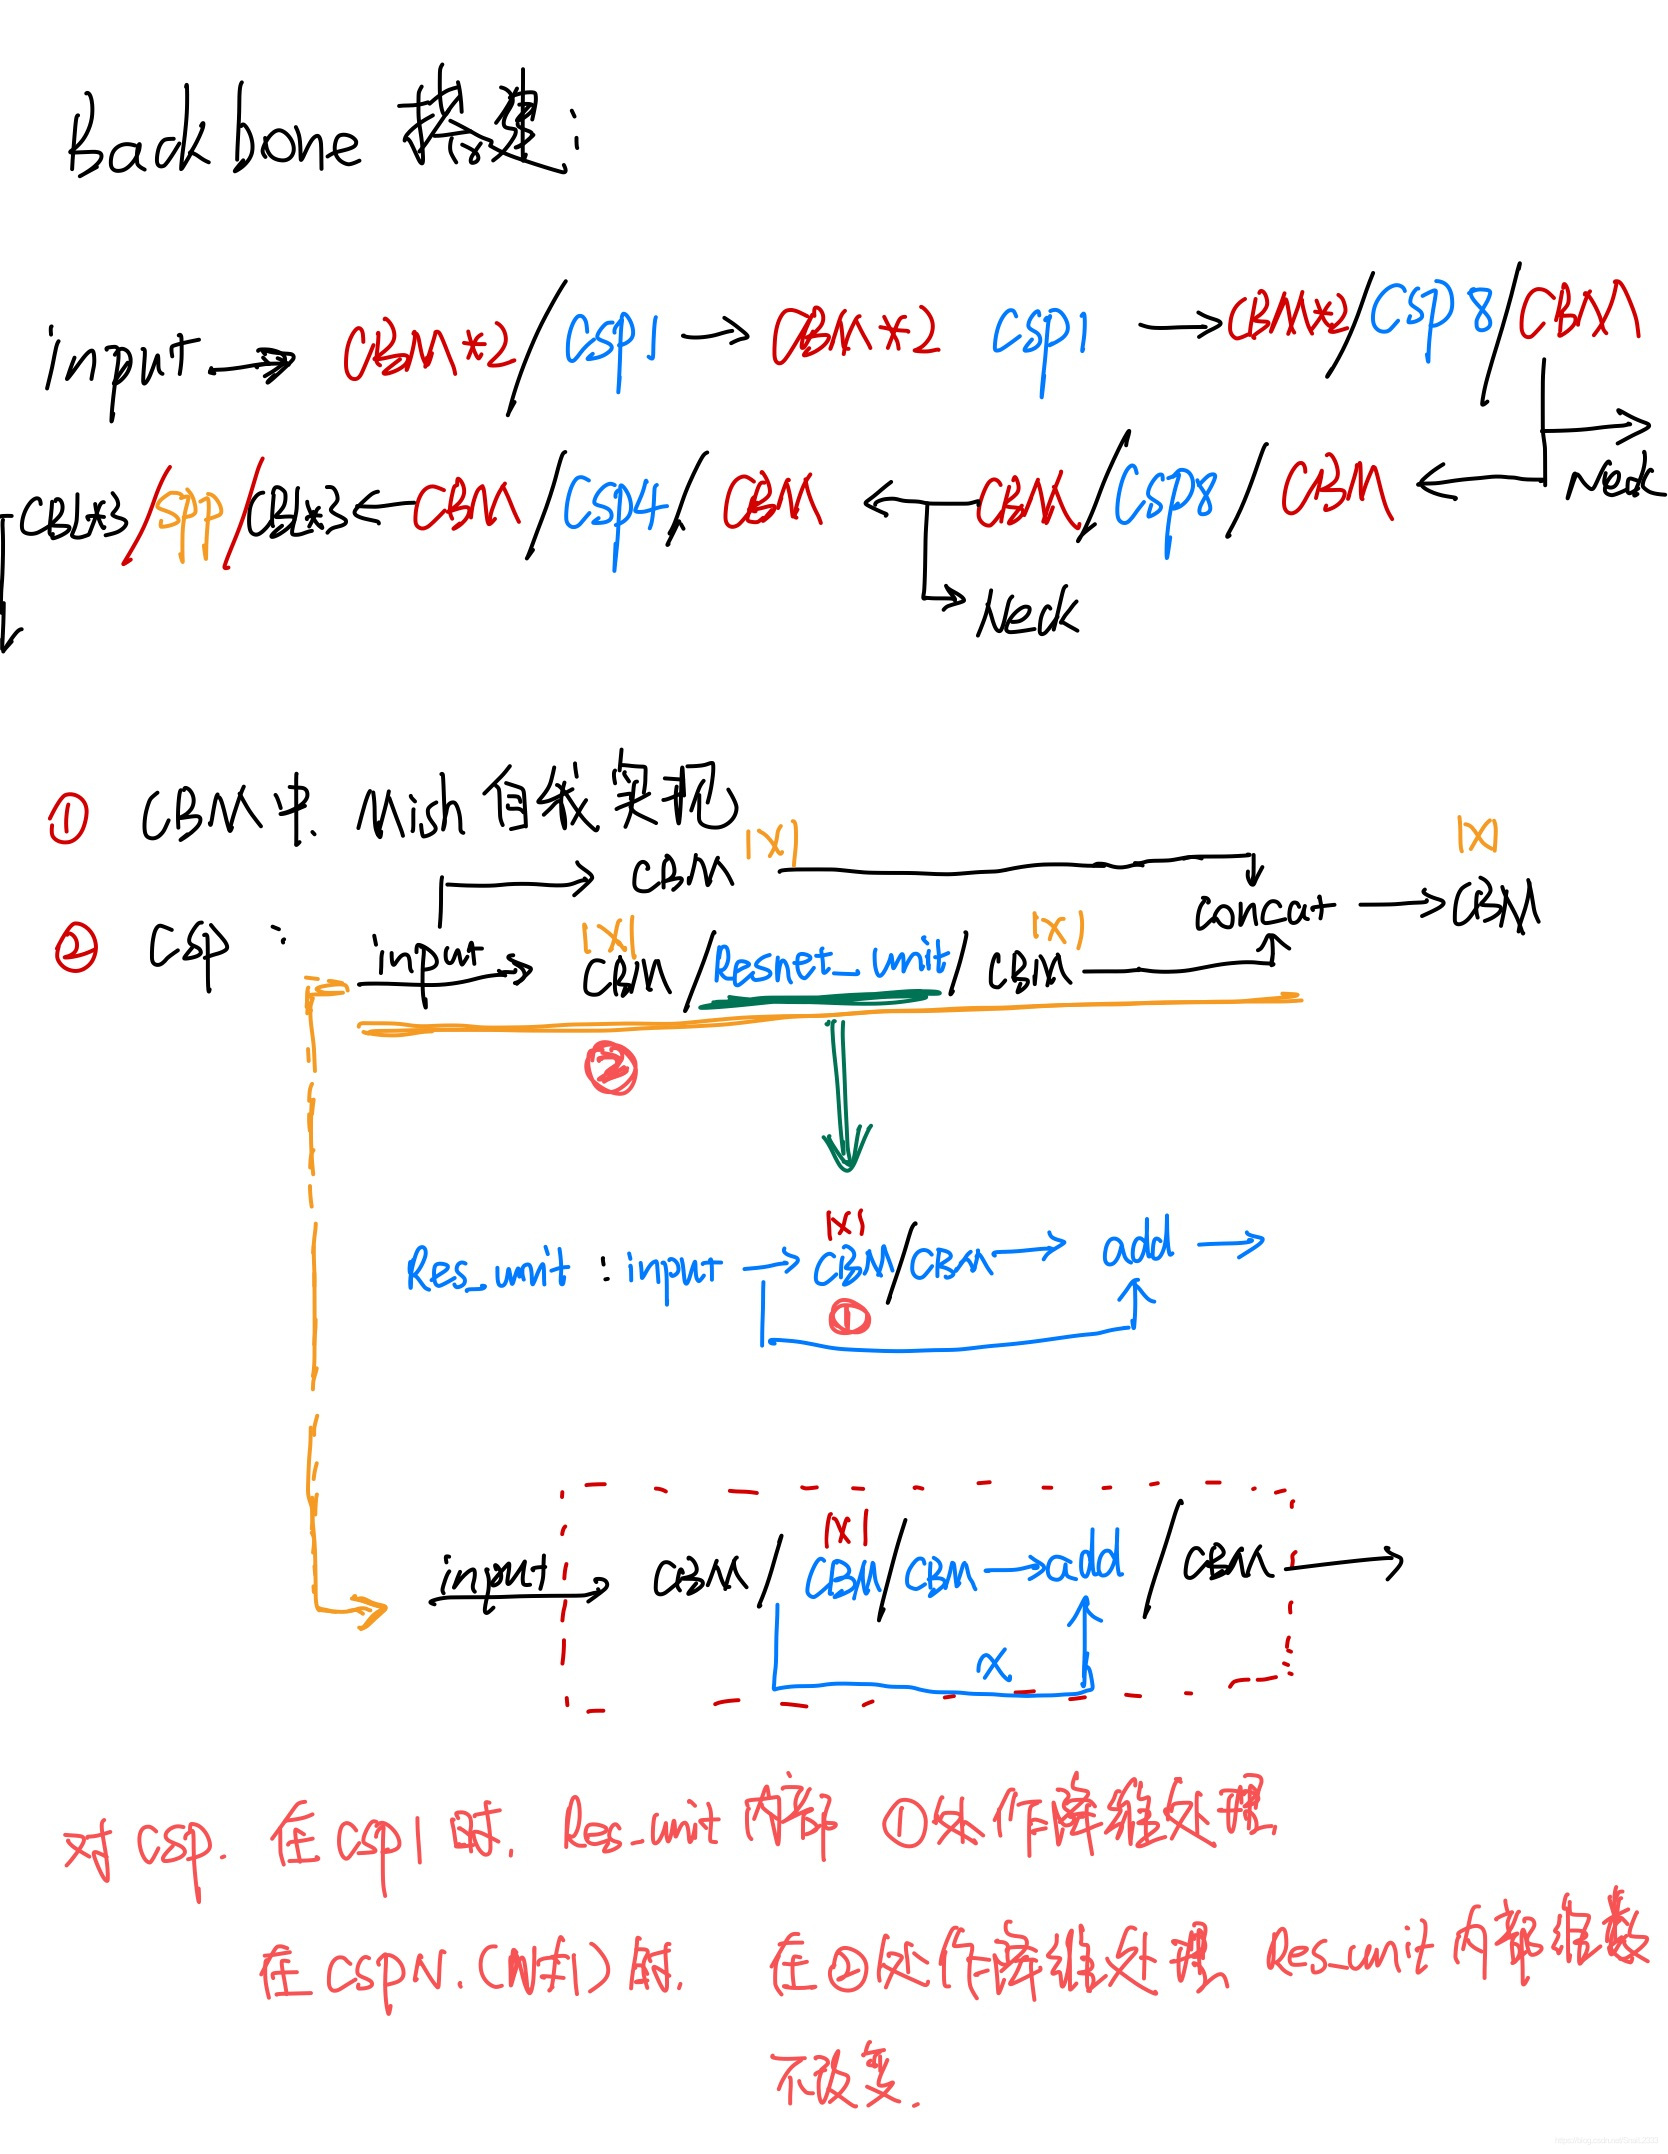 Backbone 搭建:
input → CBM*2/CSP1 → CBM*2 CSP1 → CBM*2/CSP8/CBM
Neck
CBL*3/SPP/CBL*3 ← CBM/CSP4/CBM ← CBM/CSP8/CBM
Neck
① CBM中. Mish 自我实现
② CSP :
CBM 1X1
input → 1X1 CBM/Resnet_unit/CBM 1X1
concat → CBM 1X1
②
Res_unit : input → CBM/CBM → add →
1X1
①
input → CBM/CBM/CBM → add/CBM →
1X1
x
对CSP. 在CSP1时. Res_unit内部 ①处作降维处理.
在CSPN.(N≠1)时. 在②处作降维处理 Res_unit内部维数
不改变.